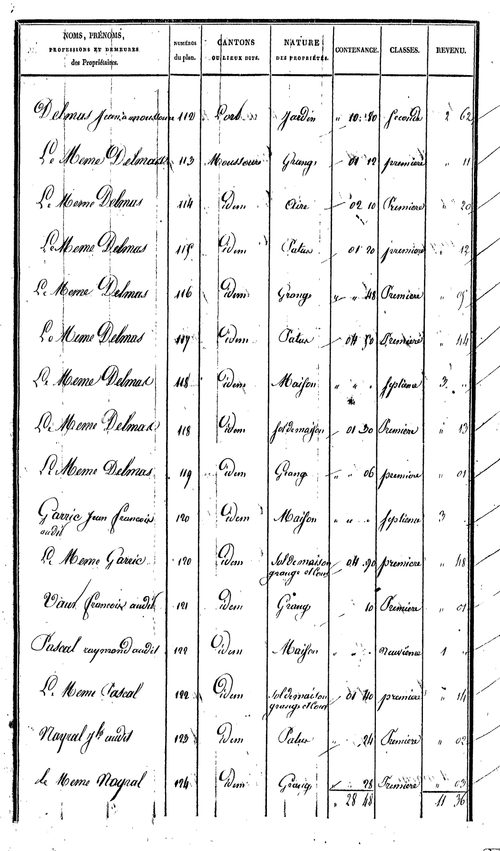 NOMS, PRÉNOMS, PROFESSIONS ET DEMEURES des Propriétaires. | NUMÉROS du plan. | CANTONS OU LIEUX DITS. | NATURE DES PROPRIÉTÉS. | CONTENANCE. | CLASSES. | REVENU.
Delmas Jean a moussoure 112 Port Jardin " 10 80 Seconde 2 62
Le Meme Delmas 113 Moussoure Grange 01 12 première " 11
Le Meme Delmas 114 idem Aire 02 10 Premiere " 20
Le Meme Delmas 115 idem Patus 01 20 premiere " 12
Le Meme Delmas 116 idem Grange " " 48 Premiere "
Le Meme Delmas 117 idem Patus 04 50 Premiere " 44
Le Meme Delmas 118 idem Maison " " " septieme 3 "
Le Meme Delmas 118 idem sol de maison 01 30 Premiere " 13
Le Meme Delmas 119 idem Grange " " 06 premiere " 01
Garric Jean francois audit 120 idem Maison " " " septieme 3
Le Meme Garric 120 idem Sol de maison grange et cour 04 90 premiere " 48
francois audit 121 idem Grange 10 Premiere " 01
Pascal raymond audit 122 idem Maison " " " neuvieme 1 "
Le Meme Pascal 122 idem Sol de maison grange et cour 01 40 premiere " 14
Nayral audit 123 idem Patus " 24 Premiere " 02
le Meme Nayral 124 idem Grange " 28 Premiere " 03
" 28 48 11 36